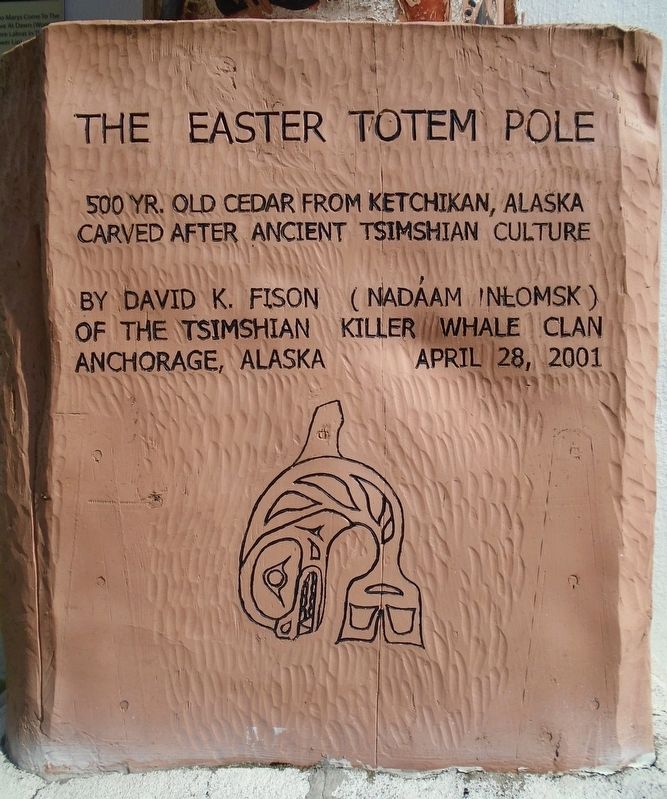 THE EASTER TOTEM POLE
500 YR. OLD CEDAR FROM KETCHIKAN, ALASKA
CARVED AFTER ANCIENT TSIMSHIAN CULTURE
BY DAVID K. FISON (NADÁAM 'NŁOMSK)
OF THE TSIMSHIAN KILLER WHALE CLAN
ANCHORAGE, ALASKA APRIL 28, 2001